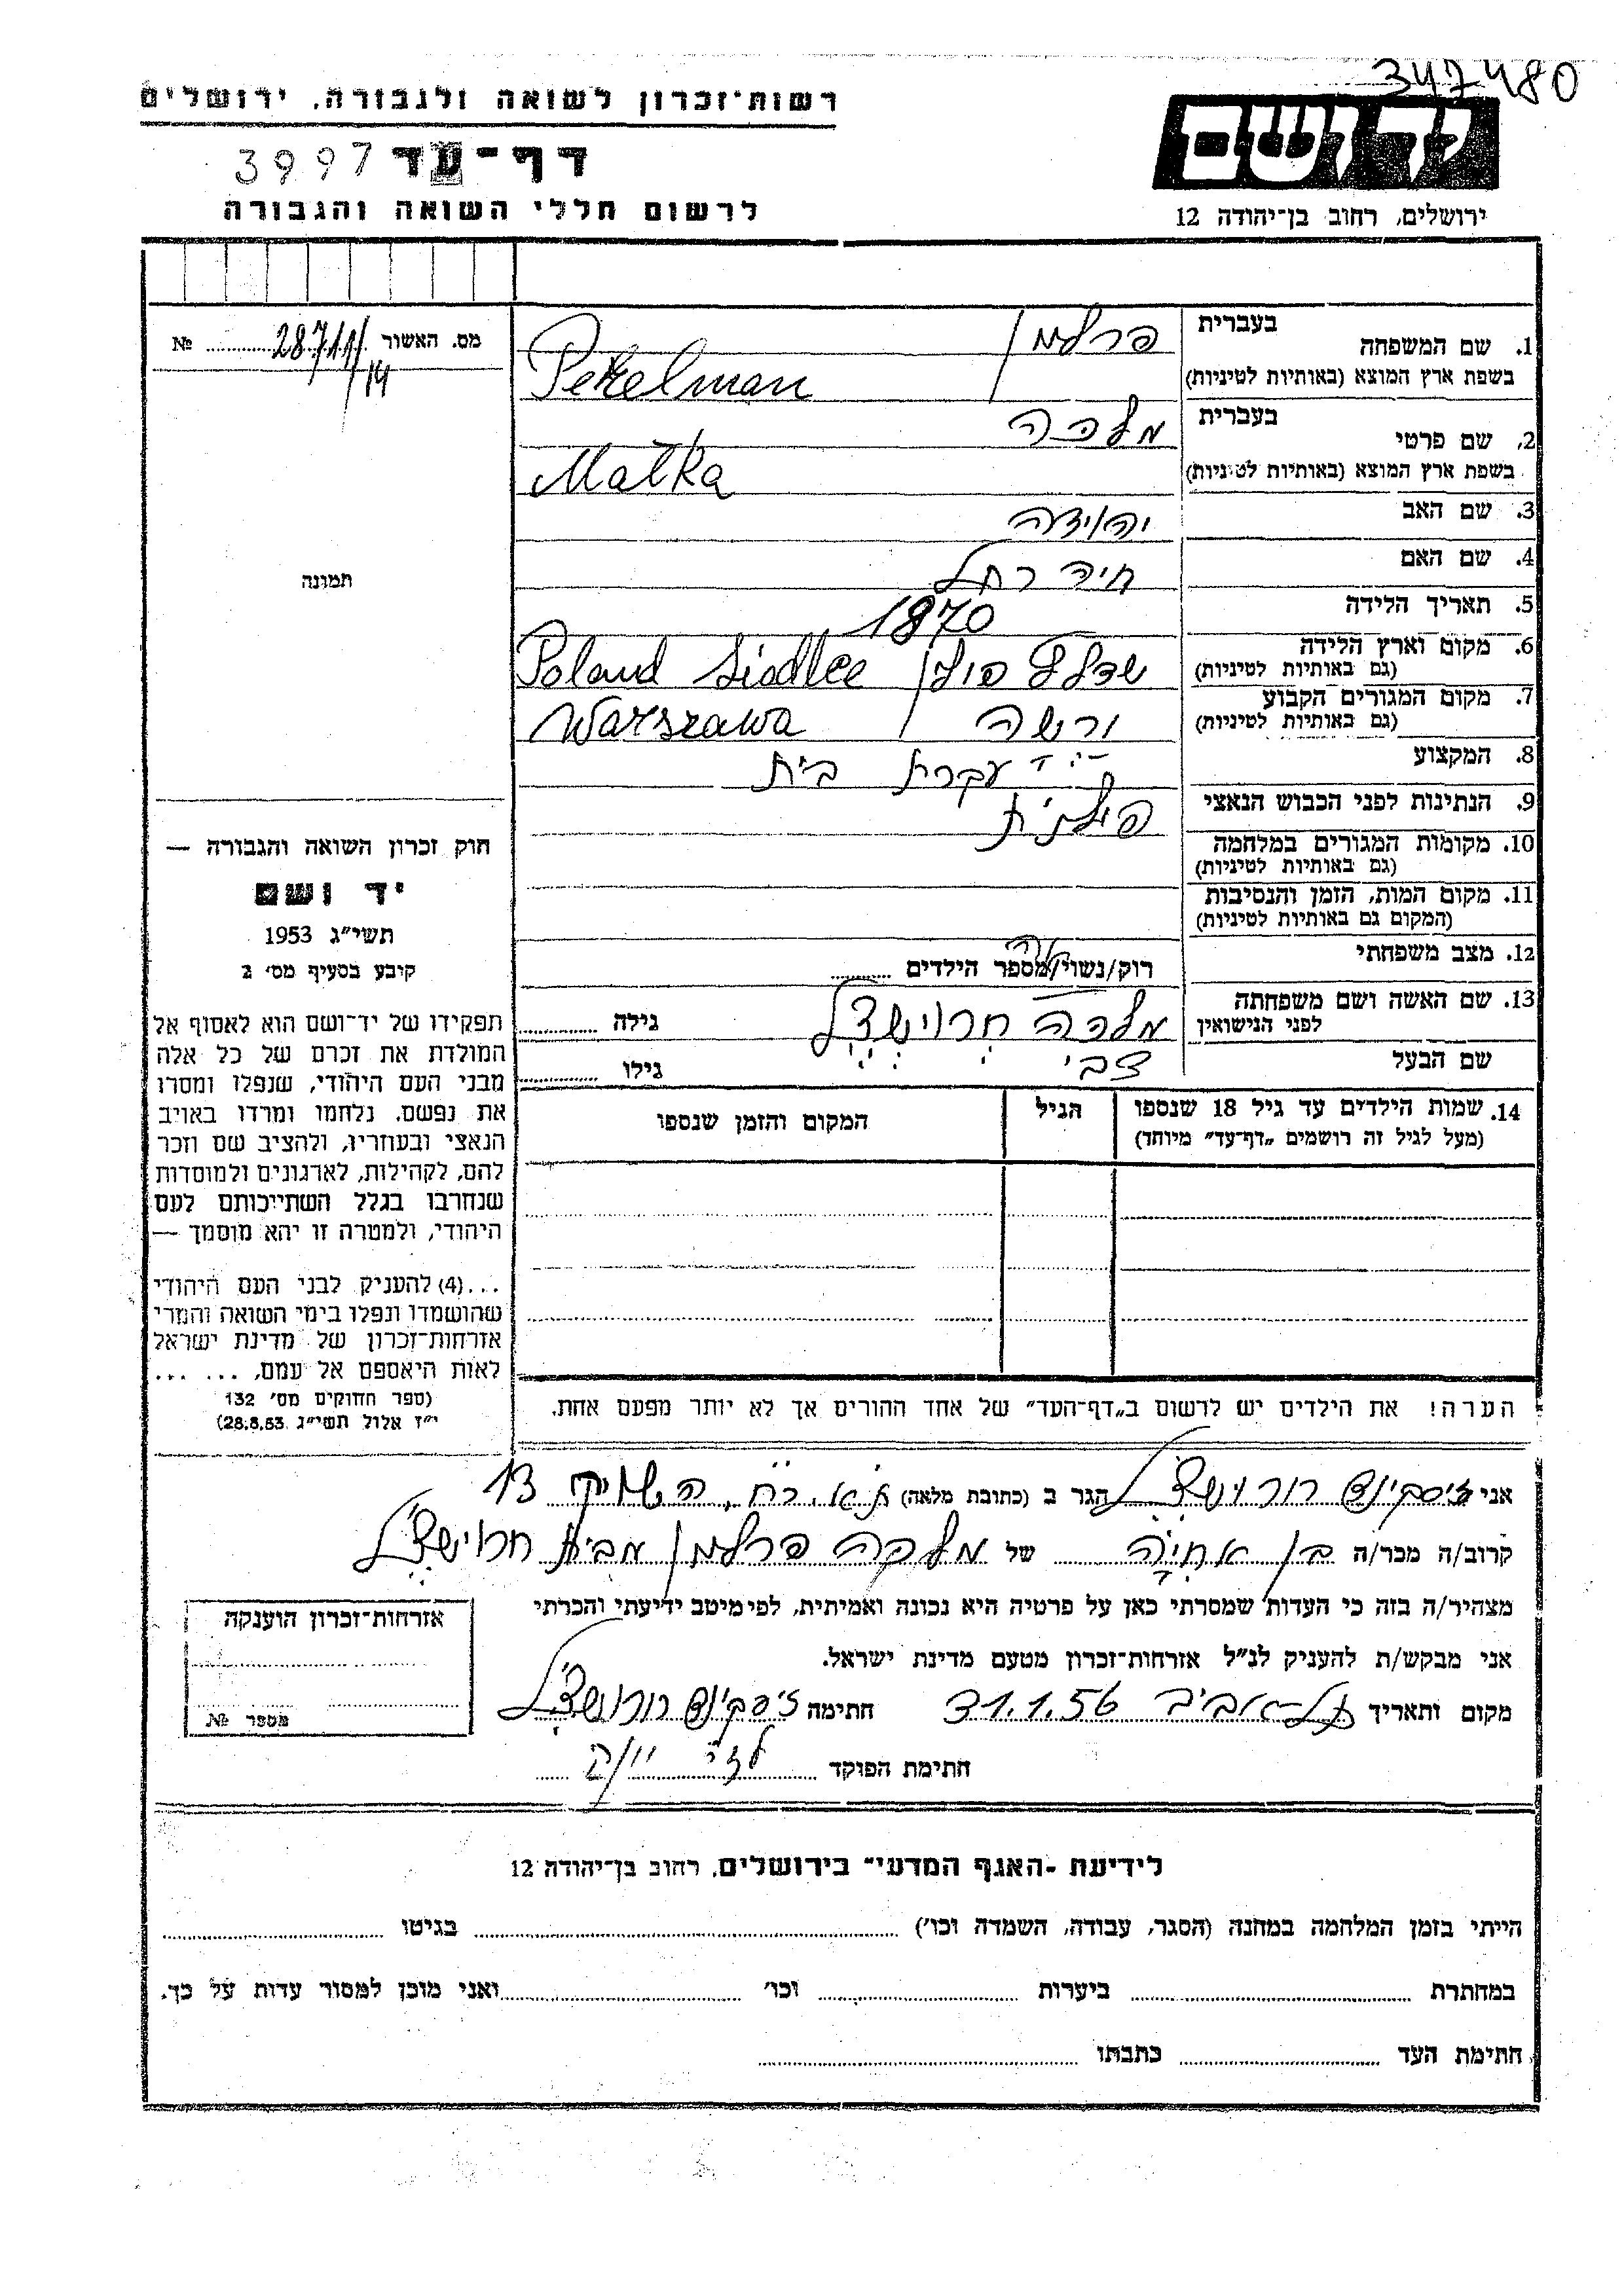 347480
רשות־זכרון לשואה ולגבורה, ירושלים
יד ושם
דף־עד 3997
לרשום חללי השואה והגבורה
ירושלים, רחוב בן־יהודה 12
מס. האשור 28711/14 №
תמונה
חוק זכרון השואה והגבורה —
יד ושם
תשי״ג 1953
קובע בסעיף מס׳ 2
תפקידו של יד־ושם הוא לאסוף אל
המולדת את זכרם של כל אלה
מבני העם היהודי, שנפלו ומסרו
את נפשם, נלחמו ומרדו באויב
הנאצי ובעוזריו, ולהציב שם וזכר
להם, לקהילות, לארגונים ולמוסדות
שנחרבו בגלל השתייכותם לעם
היהודי, ולמטרה זו יהא מוסמך —
...(4) להעניק לבני העם היהודי
שהושמדו ונפלו בימי השואה והמרי
אזרחות־זכרון של מדינת ישראל
לאות היאספם אל עמם, ... ...
(ספר החוקים מס׳ 132
י״ז אלול תשי״ג 28.8.53)
1. שם המשפחה בעברית פרלמן
בשפת ארץ המוצא (באותיות לטיניות) Pekelman
2. שם פרטי בעברית מלכה
בשפת ארץ המוצא (באותיות לטיניות) Malka
3. שם האב יהוידה
4. שם האם חיה רחל
5. תאריך הלידה 1870
6. מקום וארץ הלידה
(גם באותיות לטיניות) שדלץ פולין Poland Siedlce
7. מקום המגורים הקבוע
(גם באותיות לטיניות) ורשה Warszawa
8. המקצוע עקרת בית
9. הנתינות לפני הכבוש הנאצי פולנית
10. מקומות המגורים במלחמה
(גם באותיות לטיניות)
11. מקום המות, הזמן והנסיבות
(המקום גם באותיות לטיניות)
12. מצב משפחתי רוק/נשוי/מספר הילדים
13. שם האשה ושם משפחתה
לפני הנישואין מלכה גילה
שם הבעל צבי גילו
14. שמות הילדים עד גיל 18 שנספו
(מעל לגיל זה רושמים „דף־עד״ מיוחד)
הגיל
המקום והזמן שנספו
הערה! את הילדים יש לרשום ב„דף־העד״ של אחד ההורים אך לא יותר מפעם אחת.
אני זיסקינד הגר ב (כתובת מלאה) ת״א, 13
קרוב/ה מכר/ה בן אחיה של מלכה פרלמן מבית
מצהיר/ה בזה כי העדות שמסרתי כאן על פרטיה היא נכונה ואמיתית, לפי מיטב ידיעתי והכרתי
אני מבקש/ת להעניק לנ״ל אזרחות־זכרון מטעם מדינת ישראל.
מקום ותאריך תל־אביב 31.1.56 חתימה זיסקינד
חתימת הפוקד
אזרחות־זכרון הוענקה
מספר №
לידיעת ־האגף המדעי־ בירושלים, רחוב בן־יהודה 12
הייתי בזמן המלחמה במחנה (הסגר, עבודה, השמדה וכו׳) בגיטו
במחתרת ביערות וכו׳ ואני מוכן למסור עדות על כך.
חתימת העד כתבתו